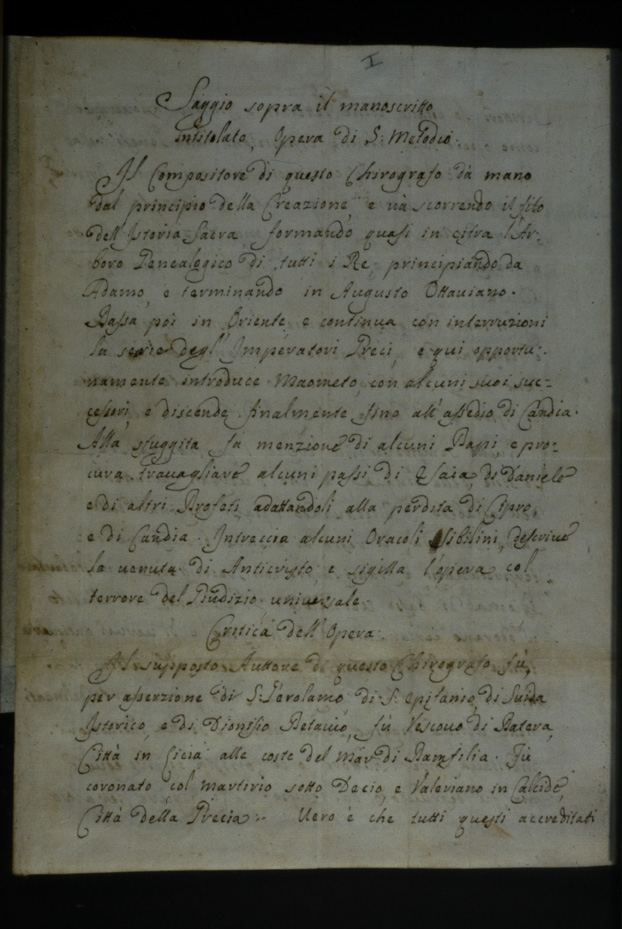 I
Saggio sopra il manoscritto
intitolato Opera di S: Metodio.
Il Compositore di questo Chirografo dà mano
dal principio della Creazione, e va scorrendo il filo
dell'Istoria Sacra, formando quasi in citra l'Ar-
boro Genealogico di tutti i Re principiando da
Adamo, e terminando in Augusto Ottaviano.
Passa poi in Oriente, e continua con interruzioni
la serie degl'Imperatori Greci, e qui opportu-
namente introduce Maometo, con alcuni suoi suc-
cessori, e discende finalmente fino all'assedio di Candia.
Alla sfuggita fa menzione di alcuni Papi, e pro-
cura travagliare alcuni passi di Esaia, di Daniele
e di altri Profeti adattandoli alla perdita di Cipro,
e di Candia. Intreccia alcuni Oracoli Sibilini, descrive
la venuta di Anticristo e sigilla l'opera col
terrore del Giudizio universale.
Critica dell'Opera.
Il supposto Auttore di questo Chirografo fù,
per asserzione di S: Gerolamo, di S: Epifanio, di Suida
Istorico, e di Dionisio Petavio, fù Vescovo di Patera,
Città in Licia alle coste del Mar di Pamfilia. Fù
coronato col martirio sotto Decio, e Valeriano in Calcide,
Città della Grecia:- Vero è che tutti questi accreditati